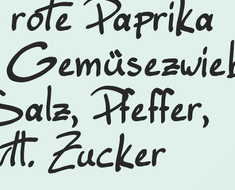 rote Paprika
Gemüsezwieb
Salz, Pfeffer,
tt. Zucker